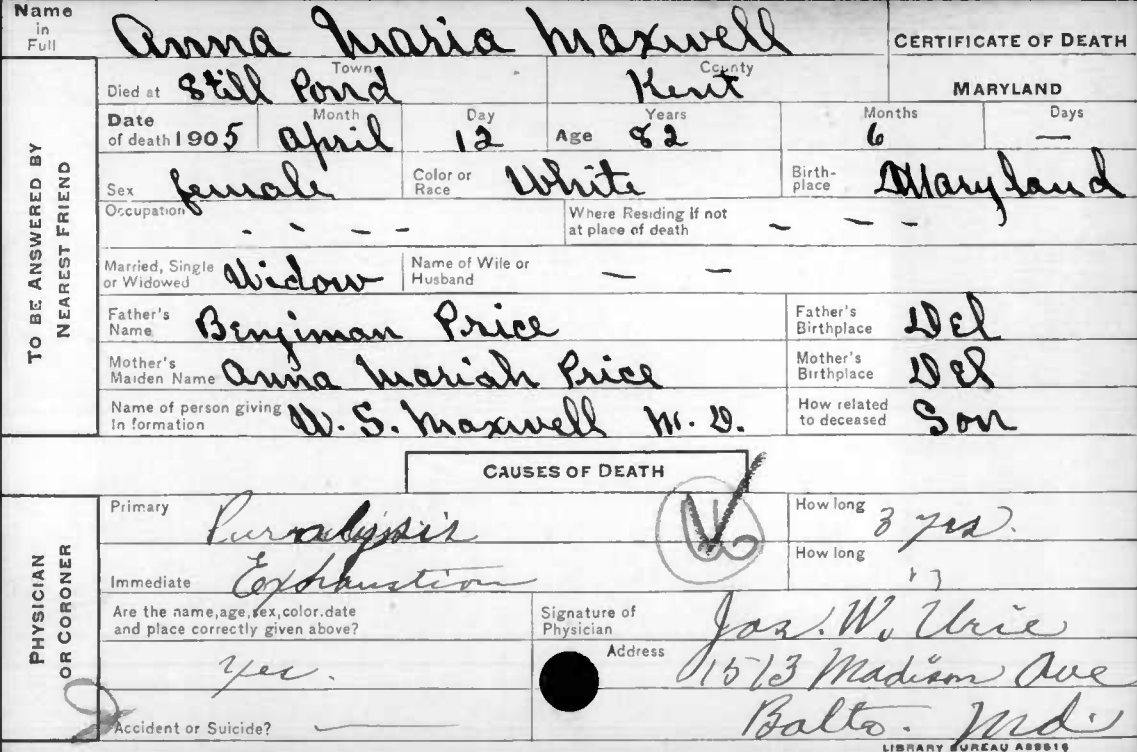 Name in Full Anna Maria Maxwell CERTIFICATE OF DEATH
TO BE ANSWERED BY NEAREST FRIEND
Died at Still Pond Town Kent County MARYLAND
Date of death 1905 Month April Day 12 Age Years 82 Months 6 Days —
Sex female Color or Race White Birth-place Maryland
Occupation - - - - Where Residing if not at place of death - - - -
Married, Single or Widowed Widow Name of Wife or Husband — —
Father's Name Benjiman Price Father's Birthplace Del
Mother's Maiden Name Anna Mariah Price Mother's Birthplace Del
Name of person giving Information W. S. Maxwell M. D. How related to deceased Son
CAUSES OF DEATH
PHYSICIAN OR CORONER
Primary Purralysis How long 3 yrs.
Immediate Exhaustion How long "
Are the name, age, sex, color. date and place correctly given above? Yes.
Signature of Physician Jos. W. Urie
Address 1513 Madison Ave
Accident or Suicide? — Balto. Md.
LIBRARY BUREAU A88616